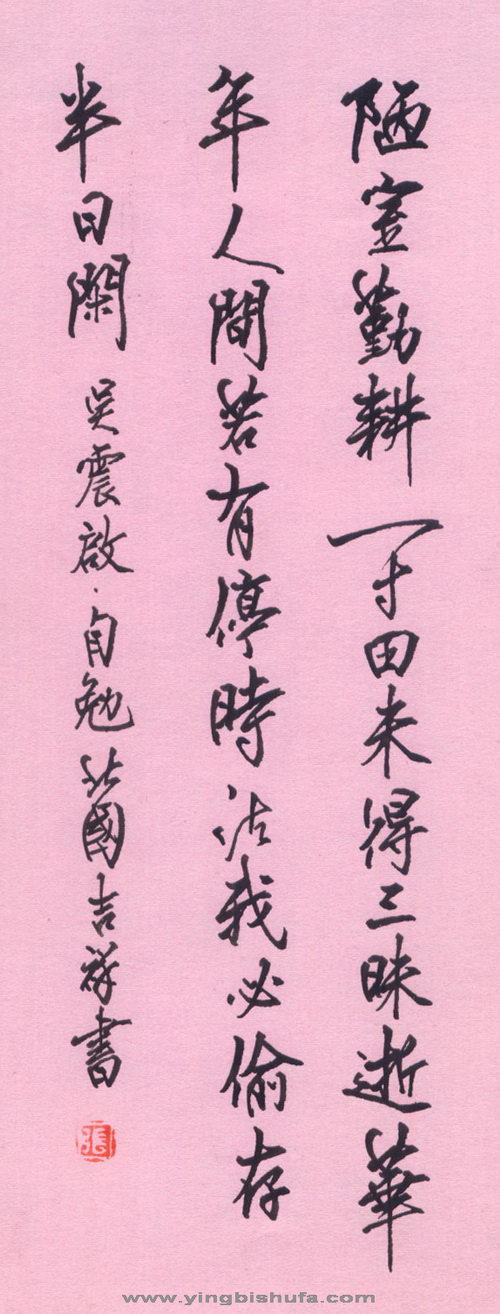 陋室勤耕一寸田未得三昧逝華
年人間若有停時沽我必偷存
半日閑 吴震啟·自勉北國吉祥書
張
www.yingbishufa.com